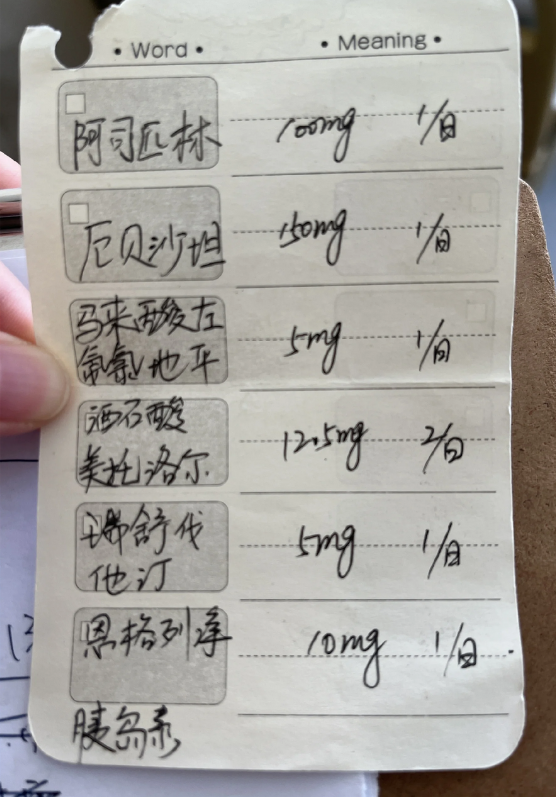 • Word • • Meaning •
阿司匹林 100mg 1/日
厄贝沙坦 150mg 1/日
马来酸左
氨氯地平 5mg 1/日
酒石酸
美托洛尔 12.5mg 2/日
瑞舒伐
他汀 5mg 1/日
恩格列净 10mg 1/日.
胰岛素